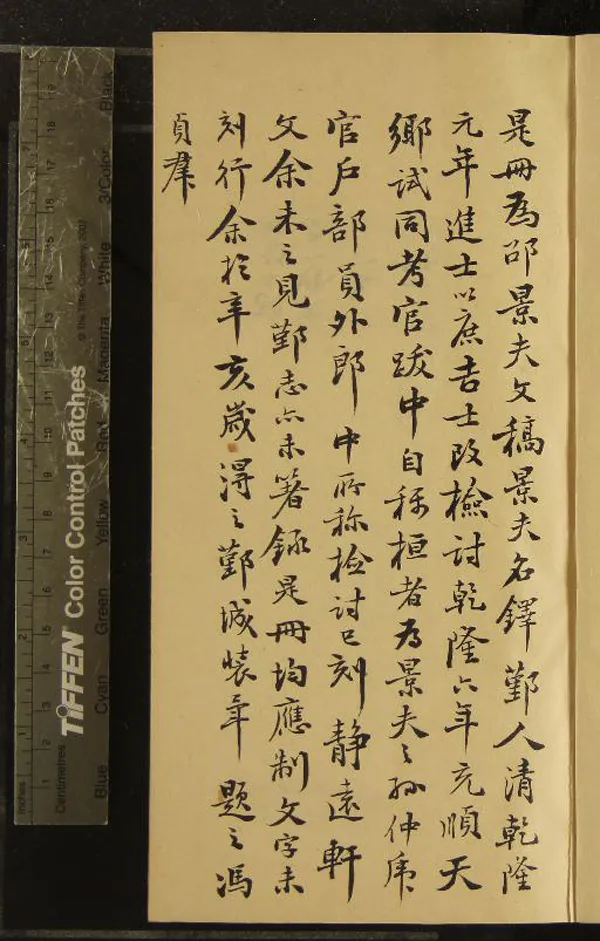 是冊為邵景夫文稿景夫名鐸鄞人清乾隆
元年進士以庶吉士改檢討乾隆六年充順天
鄉試同考官跋中自稱桓者為景夫之孫仲虎
官戶部員外郎中所称檢討已刻靜遠軒
文余未之見鄞志亦未箸錄是冊均應制文字未
刻行余於辛亥歲得之鄞城裝年題之馮
貞羣
Inches
Centimetres
TIFFEN Color Control Patches
© The Tiffen Company, 2007
Blue Cyan Green Yellow Red Magenta White 3/Color Black